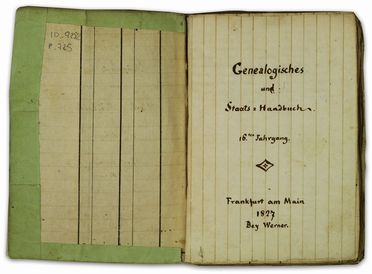 Genealogisches
und
Staats = Handbuch.
16.tes Jahrgang.
Frankfurt am Main
1827
Bey Werner.